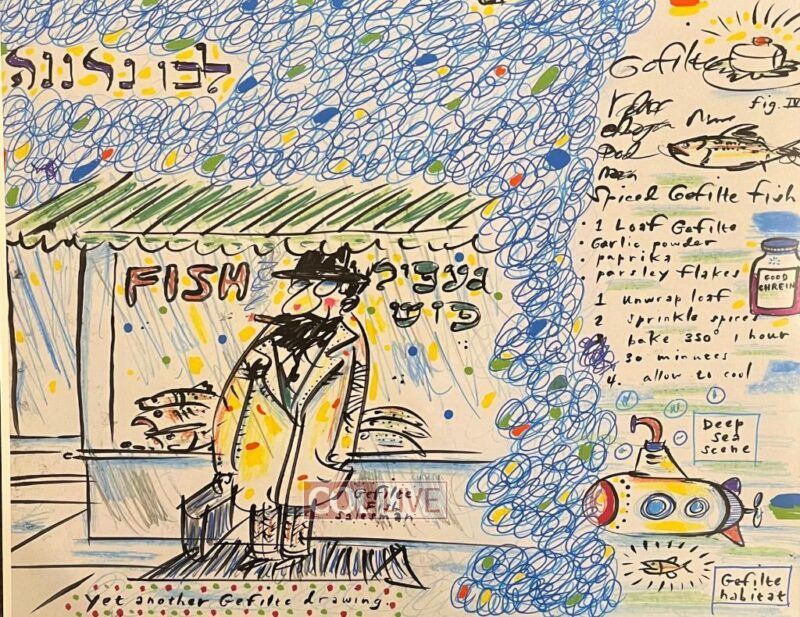 לכו נרננה
FISH
פיש
Gefilte
salesman
COLLIVE
Yet another Gefilte drawing.
Gefilte
fig. IV
Spiced Gefilte fish
1 Loaf Gefilte
• Garlic powder
paprika
• parsley flakes
1 unwrap loaf
2 sprinkle spices
3 bake 350° 1 hour
30 minutes
4. allow to cool
GOOD
CHREIN
Deep
sea
scene
Gefilte
habitat